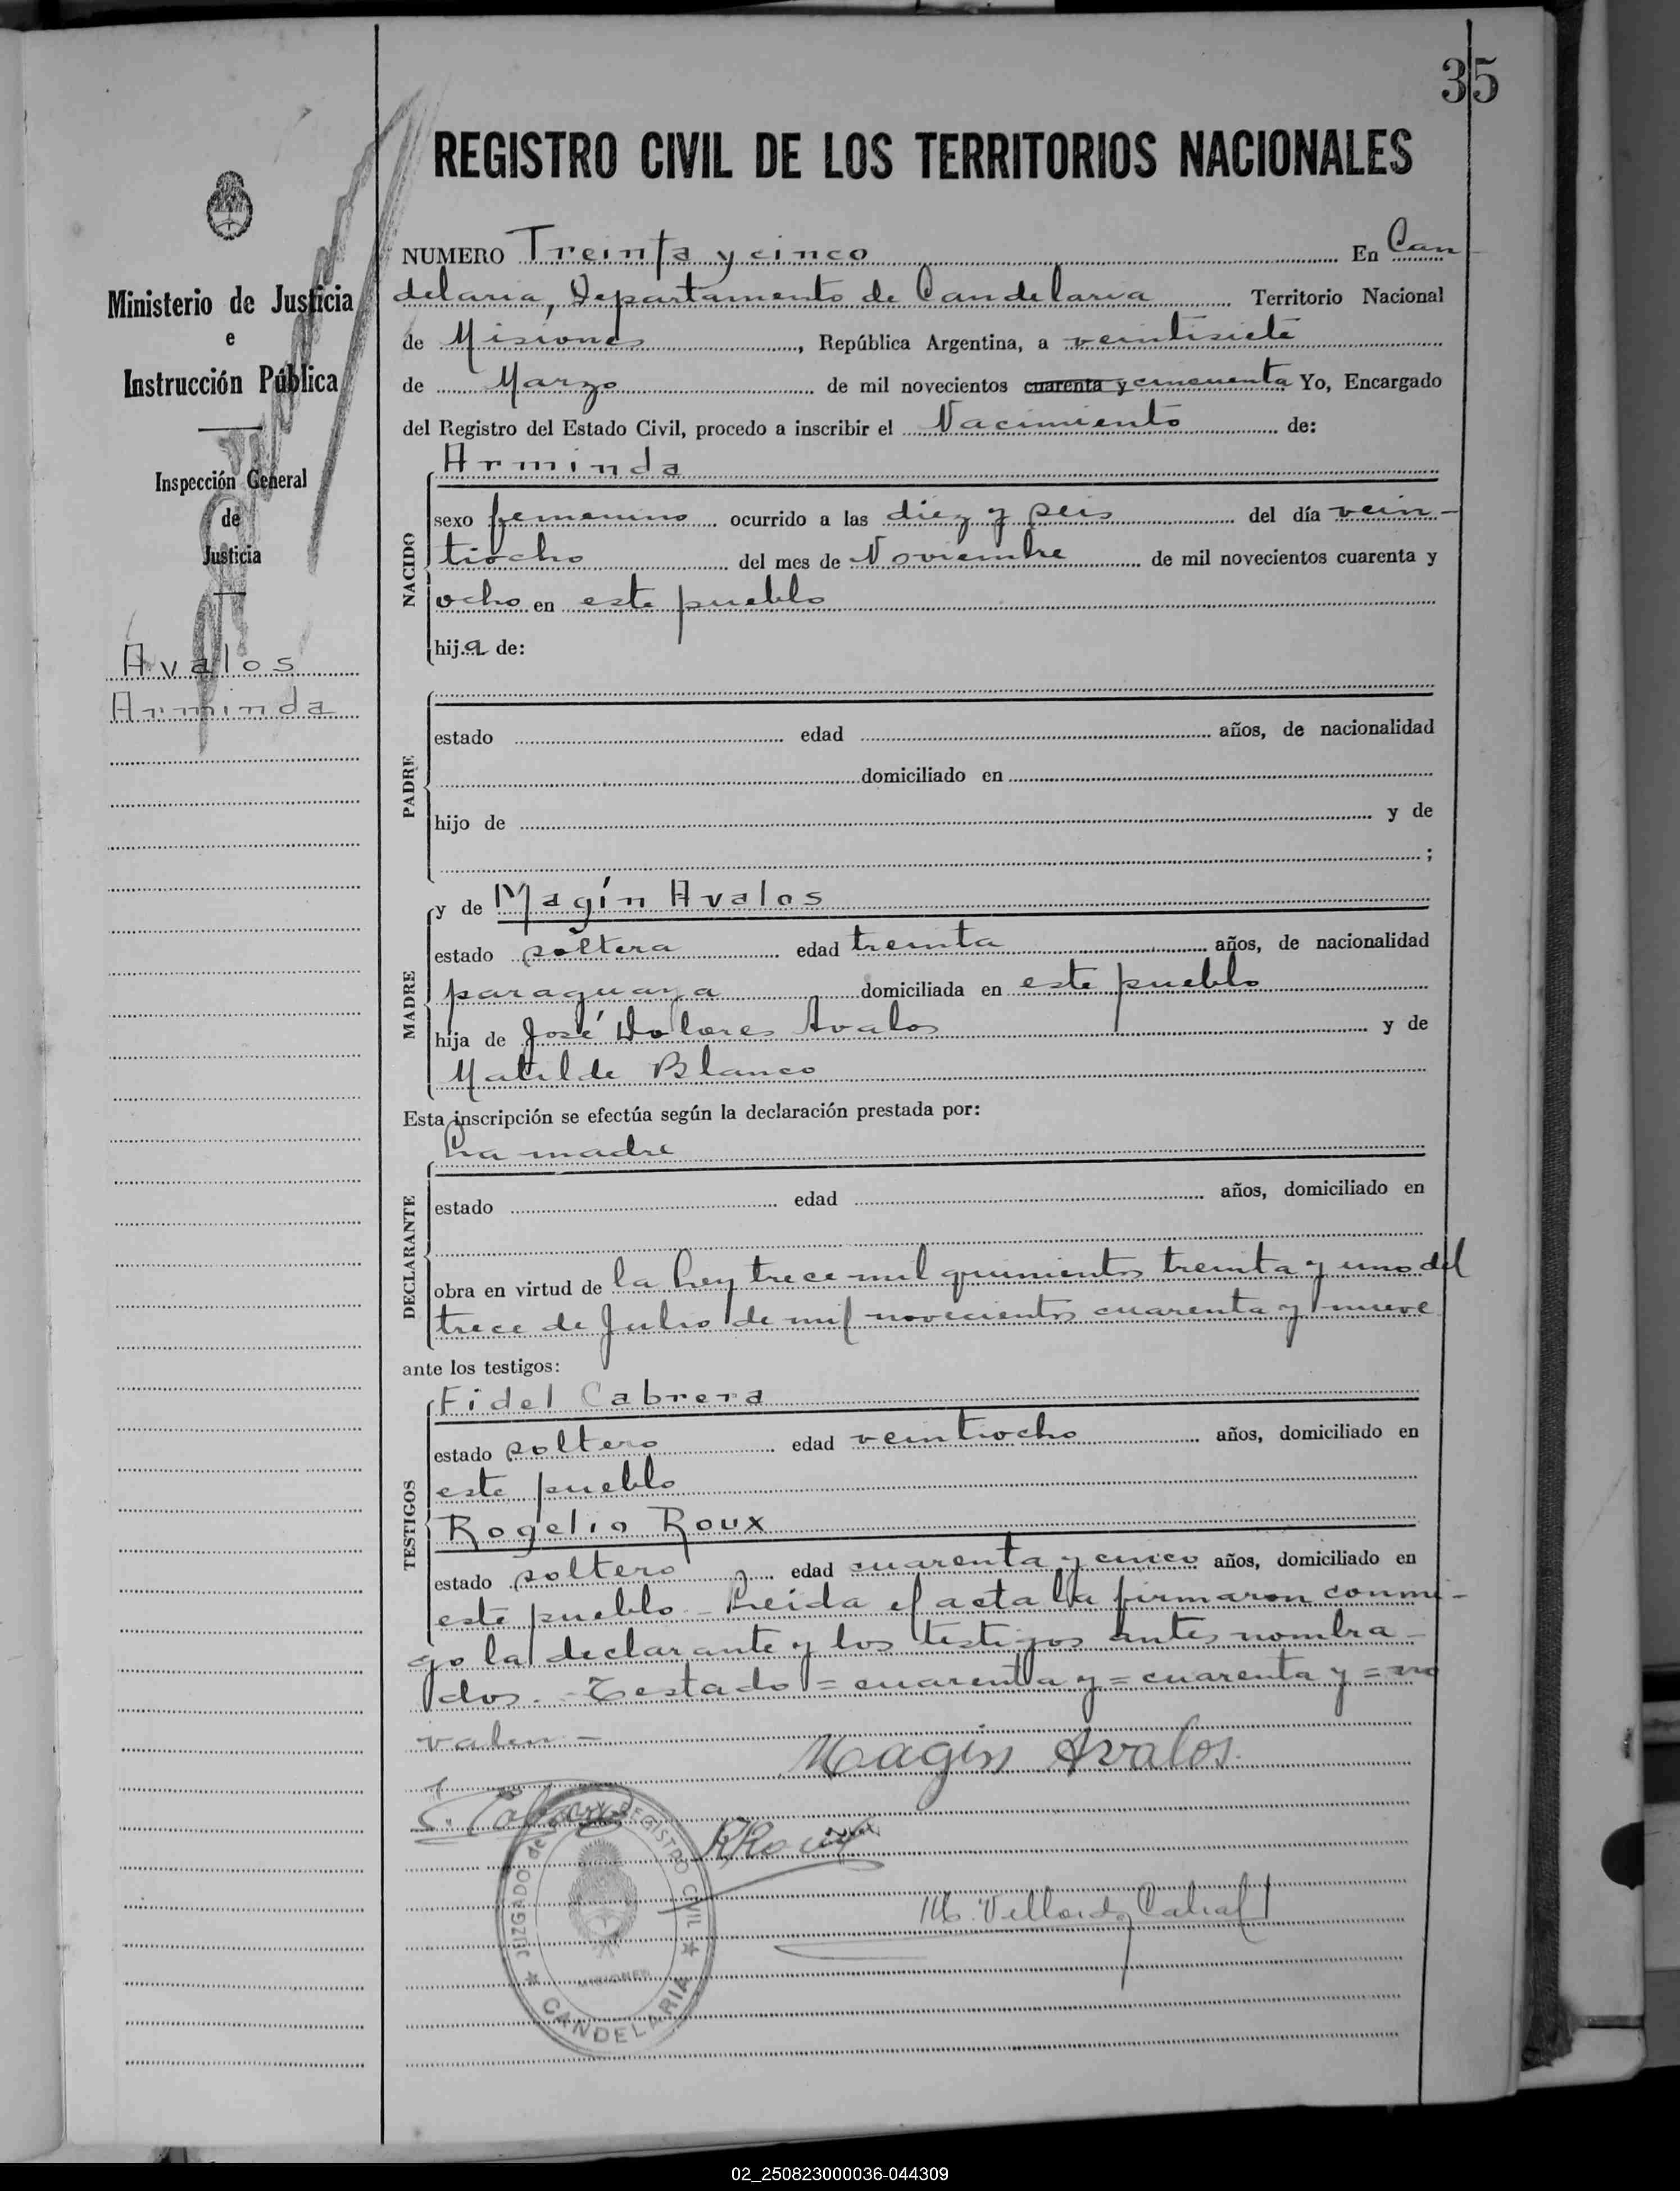 35
REGISTRO CIVIL DE LOS TERRITORIOS NACIONALES
NUMERO Treinta y cinco En Can-
delaria, Departamento de Candelaria Territorio Nacional
de Misiones, República Argentina, a veintisiete
de Marzo de mil novecientos cuarenta y cincuenta Yo, Encargado
del Registro del Estado Civil, procedo a inscribir el Nacimiento de:
Ministerio de Justicia
e
Instrucción Pública
Inspección General
de
Justicia
Avalos
Arminda
NACIDO
Arminda
sexo femenino ocurrido a las diez y seis del día vein-
tiocho del mes de Noviembre de mil novecientos cuarenta y
ocho en este pueblo
hija de:
PADRE
estado edad años, de nacionalidad
domiciliado en
hijo de y de
;
MADRE
y de Magín Avalos
estado soltera edad treinta años, de nacionalidad
paraguaya domiciliada en este pueblo
hija de José Dolores Avalos y de
Matilde Blanco
Esta inscripción se efectúa según la declaración prestada por:
DECLARANTE
La madre
estado edad años, domiciliado en
obra en virtud de la Ley trece mil quinientos treinta y uno del
trece de Julio de mil novecientos cuarenta y nueve
ante los testigos:
TESTIGOS
Fidel Cabrera
estado soltero edad veintiocho años, domiciliado en
este pueblo
Rogelio Roux
estado soltero edad cuarenta y cinco años, domiciliado en
este pueblo - Leida el acta la firmaron conmi-
go la declarante y los testigos antes nombra-
dos. - Testado = cuarenta y = cuarenta y = no
valen -
Magin Avalos.
F. Cabrera
RRoux
M. Cabral
JUZGADO de PAZ Y REGISTRO CIVIL
MISIONES
CANDELARIA
02_250823000036-044309